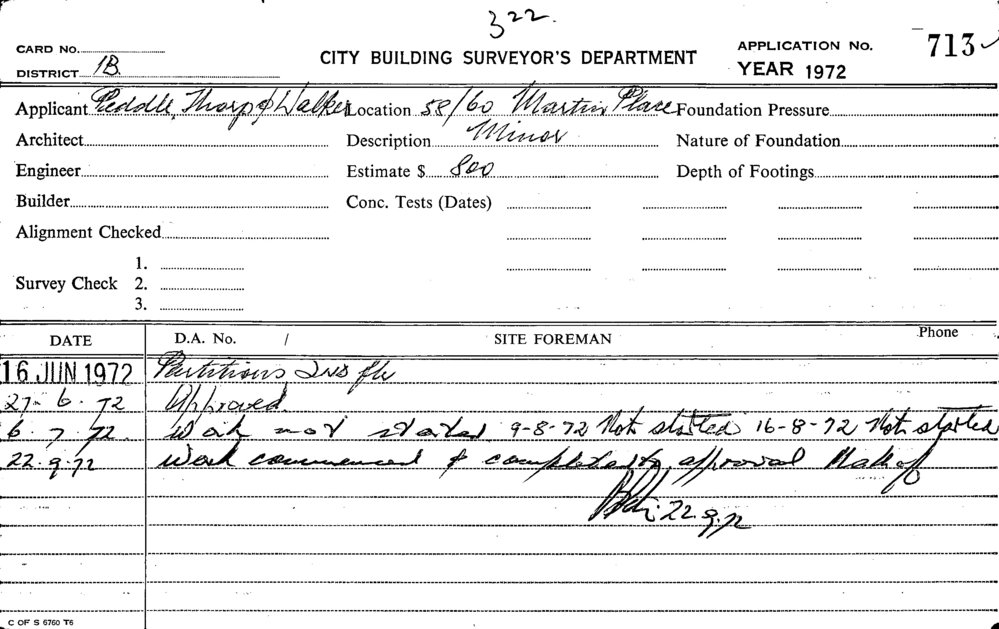 322.
CARD No.
DISTRICT 1B.
CITY BUILDING SURVEYOR'S DEPARTMENT
APPLICATION No. 713
YEAR 1972
Applicant Peddle, Thorp & Walker Location 58/60 Martin Place Foundation Pressure
Architect Description Minor Nature of Foundation
Engineer Estimate $ 800 Depth of Footings
Builder Conc. Tests (Dates)
Alignment Checked
Survey Check 1.
2.
3.
DATE D.A. No. / SITE FOREMAN Phone
16 JUN 1972 Partitions 2nd flr
27-6.72 Approved.
6.7.72. Work not started 9-8-72 Not started 16-8-72 Not started
22.9.72 Work commenced & completed to approval
22.9.72
C OF S 6760 T6